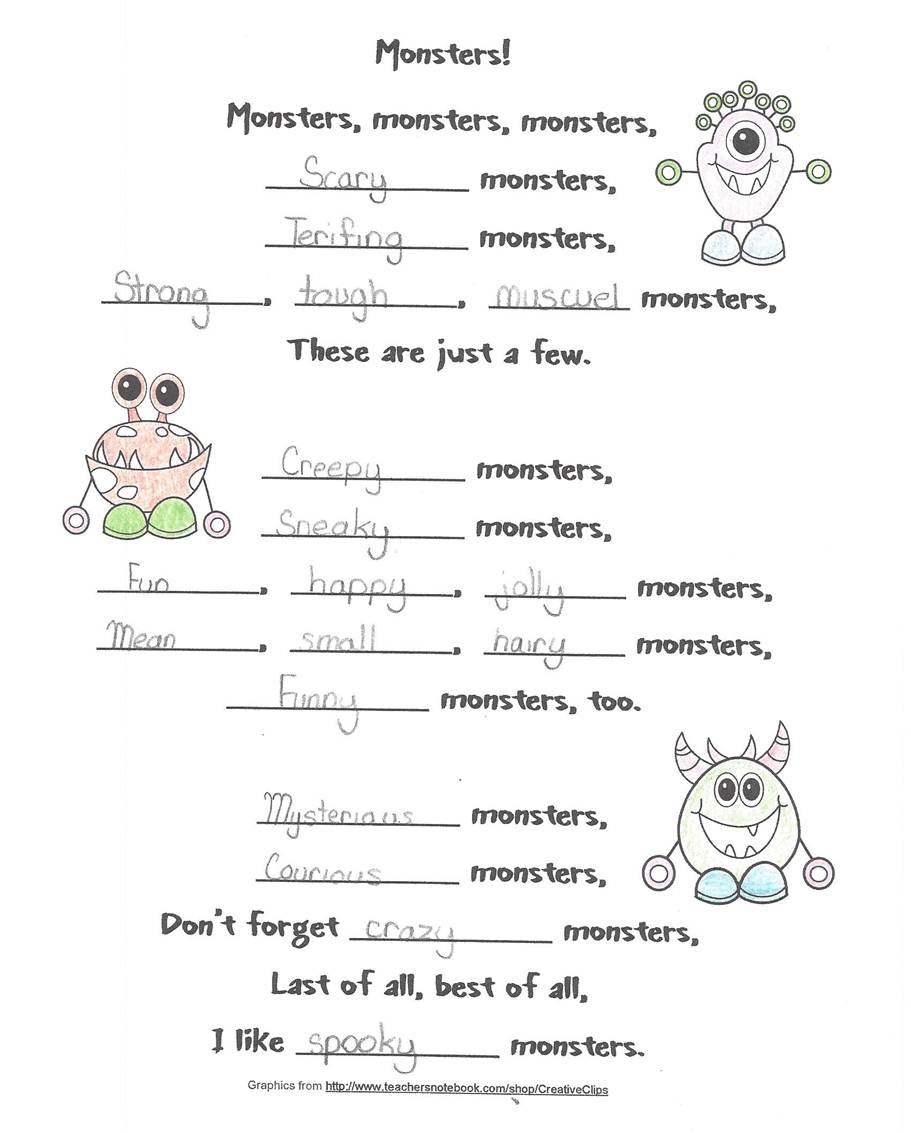 Monsters!
Monsters, monsters, monsters,
Scary monsters,
Terifing monsters,
Strong, tough, muscuel monsters,
These are just a few.
Creepy monsters,
Sneaky monsters,
Fun, happy, jolly monsters,
Mean, small, hairy monsters,
Funny monsters, too.
Mysterious monsters,
Courious monsters,
Don't forget crazy monsters,
Last of all, best of all,
I like spooky monsters.
Graphics from http://www.teachersnotebook.com/shop/CreativeClips